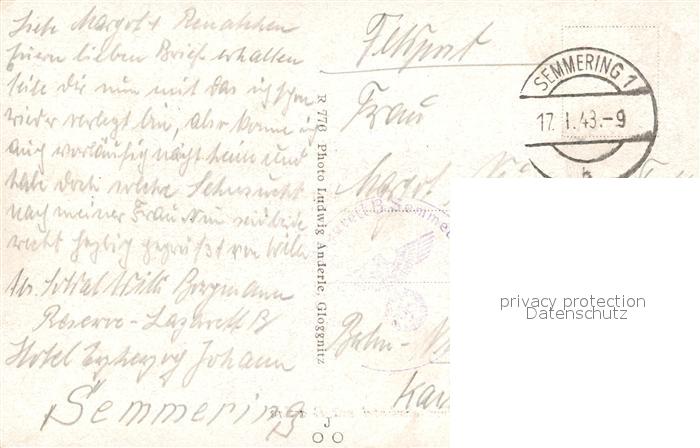 Liebe Margot + Renatchen
Euern lieben Brief erhalten
teile dir nun mit das ich schon
wieder verlegt bin, aber komme ich
auch vorläufig nicht heim und
hab doch solche Sehnsucht
nach meiner Frau. Nun seid beide
recht herzlich gegrüßt von Willi
Abs. Soldat Willi Bergmann
Reserve-Lazarett B
Hotel Erzherzog Johann
"Semmering"
R 776 Photo Ludwig Anderle, Gloggnitz
J
Feldpost
Frau
Margot
SEMMERING 1
17. I. 43.-9
b
B. Semme
Bahn-
privacy protection
Datenschutz